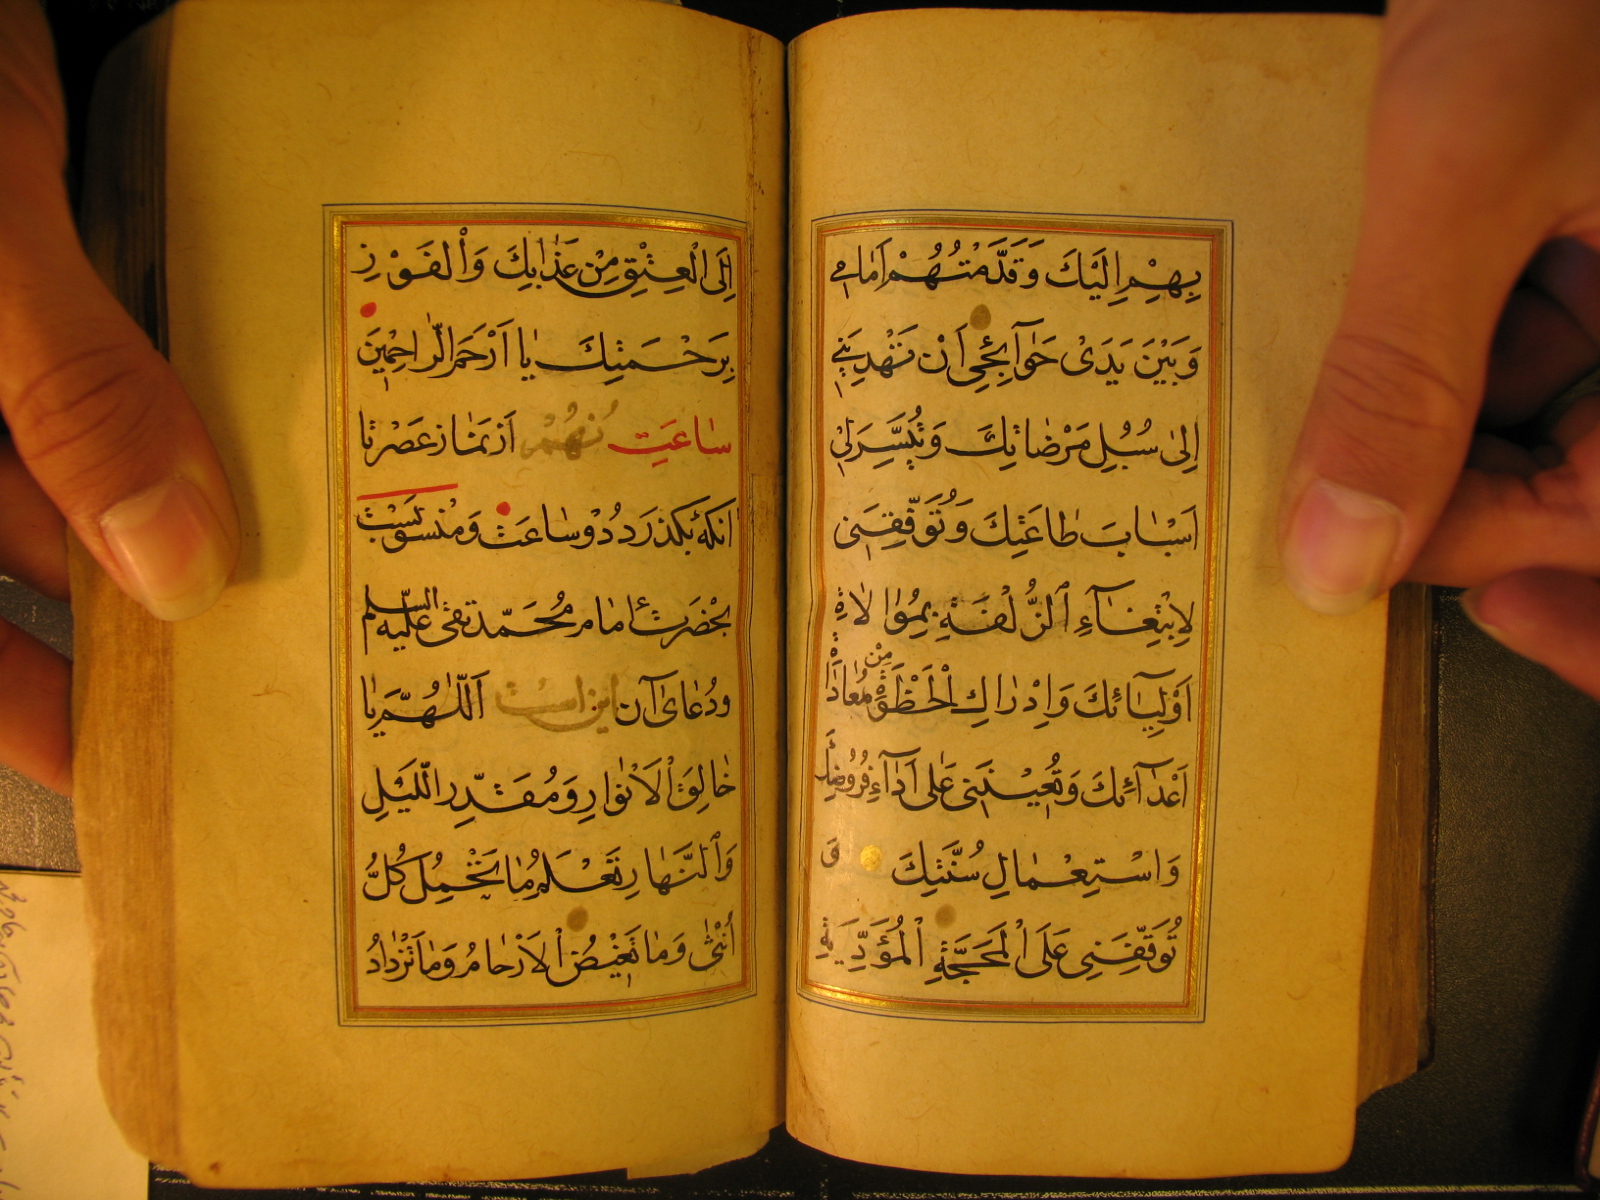 بِهِمْ اِلَيْكَ وَقَدَّمْتُهُمْ اَمَامِي
وَبَيْنَ يَدَىْ حَوٰآئِجِى اَنْ تَهْدِيَنِي
اِلىٰ سُبُلِ مَرْضٰاتِكَ وَتُيَسِّرَ لِي
اَسْبٰابَ طٰاعَتِكَ وَتُوَفِّقَنِى
لِاِبْتِغٰآءِ الزُّلْفَةِ بِمُوٰالاٰةِ
اَوْلِيٰآئِكَ وَاِدْرٰاكِ الْحَظْوَةِ مِنْ مُعٰادٰاةِ
اَعْدٰآئِكَ وَتُعِينَنِى عَلىٰ اَدٰآءِ فُرُوضِكَ
وَاسْتِعْمٰالِ سُنَّتِكَ وَ
تُوَفِّقَنِى عَلَى الْمَحَجَّةِ الْمُؤَدِّيَةِ
اِلَى الْعِتْقِ مِنْ عَذٰابِكَ وَالْفَوْزِ
بِرَحْمَتِكَ يٰا اَرْحَمَ الرّٰاحِمِينَ
سٰاعَتِ نُهُمْ اَز نَمٰاز عَصْر تٰا
انكه بكذرد دُوْ ساعَت وَمَنْسوُبَسْت
بحَضْرَت امٰام مُحَمّد تقى عليه السلم
ودُعٰاى آن اين است اَللّٰهُمَّ يٰا
خٰالِقَ الْاَنْوٰارِ وَمُقَدِّرِ اللَّيْلِ
وَالنَّهٰارِ تَعْلَمُ مٰا تَحْمِلُ كُلُّ
اُنْثٰى وَمٰا تَغِيْضُ الْاَرْحٰامُ وَمٰا تَزْدٰادُ